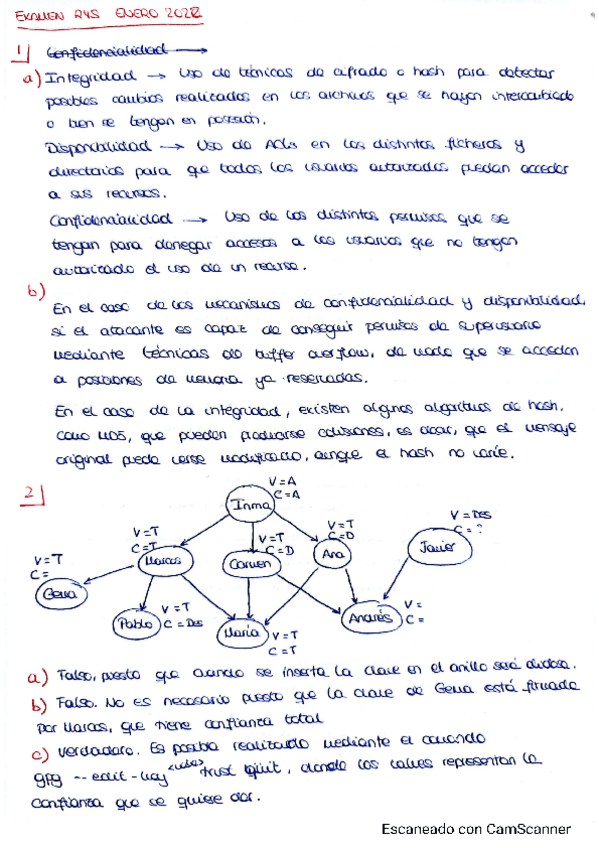 EXAMEN R4S ENERO 2022
1) Confidencialidad →
a) Integridad → Uso de técnicas de cifrado o hash para detectar
posibles cambios realizados en los archivos que se hayan intercambiado
o bien se tengan en posesión.
Disponibilidad → Uso de ACLs en los distintos ficheros y
directorios para que todos los usuarios autorizados puedan acceder
a sus recursos.
Confidencialidad → Uso de los distintos permisos que se
tengan para denegar accesos a los usuarios que no tengan
autorizado el uso de un recurso.
b)
En el caso de los mecanismos de confidencialidad y disponibilidad,
si el atacante es capaz de conseguir permisos de superusuario
mediante técnicas de buffer overflow, de modo que se acceden
a posiciones de memoria ya reservadas.
En el caso de la integridad, existen algunos algoritmos de hash,
como MD5, que pueden producirse colisiones, es decir, que el mensaje
original puede verse modificado, aunque el hash no varíe.
2)
V=A
C=A
Inma
V=T
C=T
Marcos
V=T
C=D
Carmen
V=T
C=D
Ana
V=Des
C=?
Javier
V=T
C=
Gema
Pablo
V=T
C=Des
María
V=T
C=T
Andrés
V=
C=
a) Falso, puesto que cuando se inserta la clave en el anillo será dudosa.
b) Falso. No es necesario puesto que la clave de Gema está firmada
por Marcos, que tiene confianza total
c) Verdadero. Es posible realizarlo mediante el comando
gpg --edit-key trust quit, donde los valores representan la
confianza que se quiere dar.
Escaneado con CamScanner